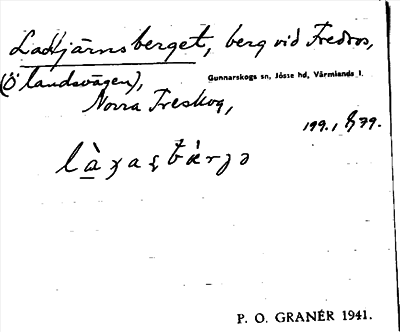 Ladtjärnsberget, berg vid Fredros,
(Ö landsvägen), Gunnarskogs sn, Jösse hd, Värmlands l.
Norra Treskog,
199.1
P. O. GRANÉR 1941.